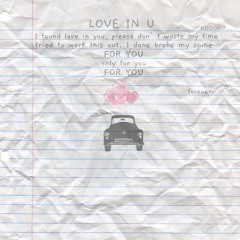 LOVE IN U
I found love in you, please don't waste my time
tried to work this out, I done broke my spine
FOR YOU
only for you
FOR YOU
forever